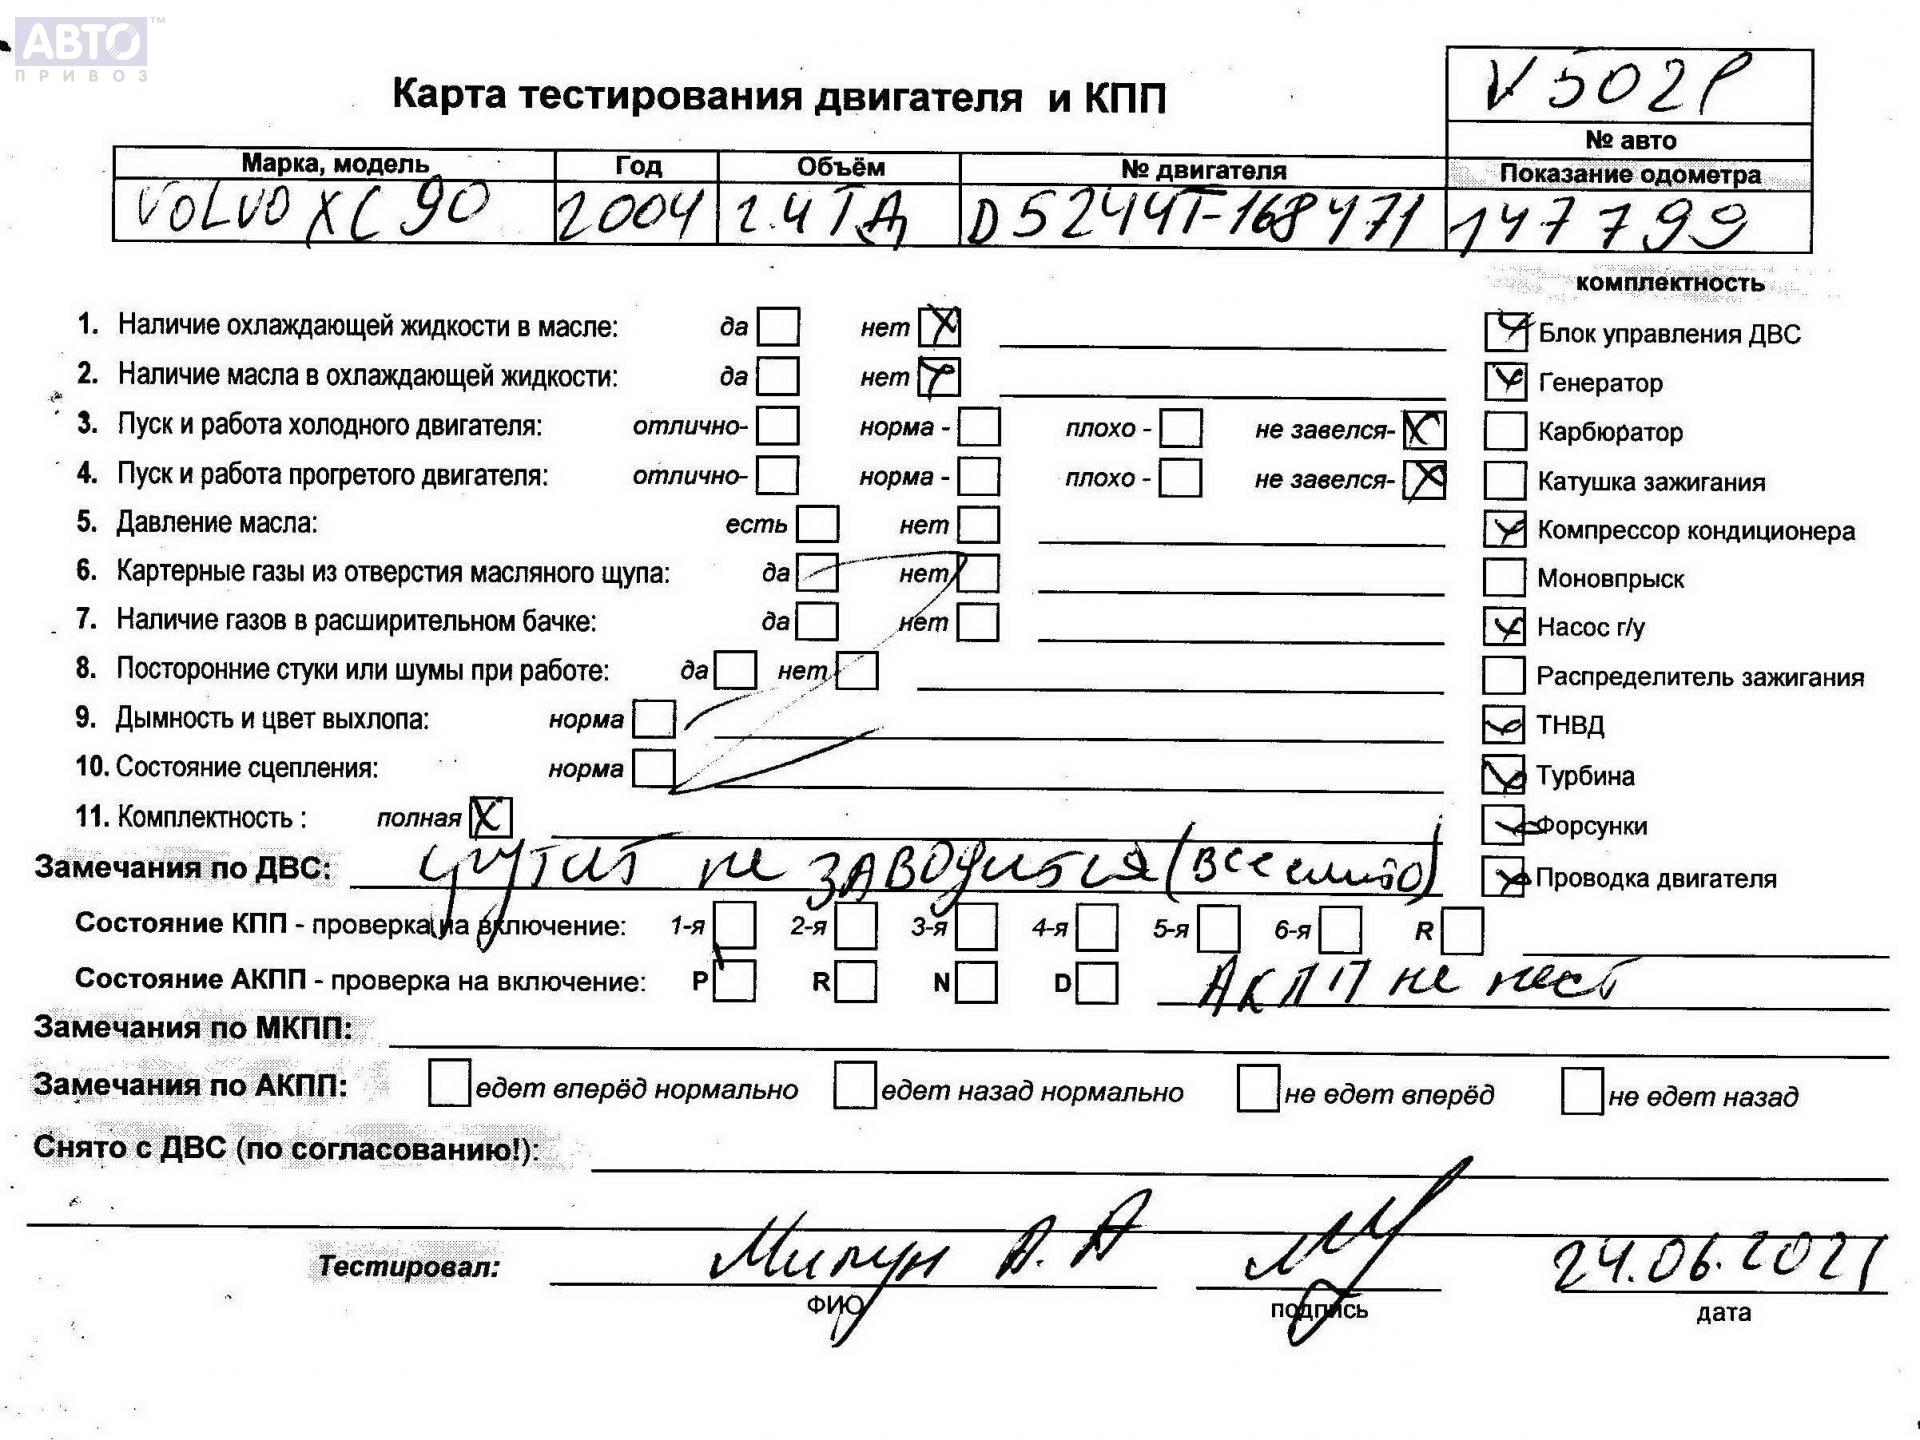 АВТО ™
ПРИВОЗ
Карта тестирования двигателя и КПП
V502P
№ авто
Марка, модель Год Объём № двигателя Показание одометра
VOLVO XC 90 2004 2.4 ТД D5244T-168471 147799
комплектность
1. Наличие охлаждающей жидкости в масле: да нет Блок управления ДВС
2. Наличие масла в охлаждающей жидкости: да нет Генератор
3. Пуск и работа холодного двигателя: отлично- норма - плохо - не завелся- Карбюратор
4. Пуск и работа прогретого двигателя: отлично- норма - плохо - не завелся- Катушка зажигания
5. Давление масла: есть нет Компрессор кондиционера
6. Картерные газы из отверстия масляного щупа: да нет Моновпрыск
7. Наличие газов в расширительном бачке: да нет Насос г/у
8. Посторонние стуки или шумы при работе: да нет Распределитель зажигания
9. Дымность и цвет выхлопа: норма ТНВД
10. Состояние сцепления: норма Турбина
11. Комплектность : полная Форсунки
Замечания по ДВС: крутит не заводится (все Проводка двигателя
Состояние КПП - проверка на включение: 1-я 2-я 3-я 4-я 5-я 6-я R
Состояние АКПП - проверка на включение: P R N D АКПП не тест
Замечания по МКПП:
Замечания по АКПП: едет вперёд нормально едет назад нормально не едет вперёд не едет назад
Снято с ДВС (по согласованию!):
Тестировал: А. А 24.06.2021
ФИО подпись дата